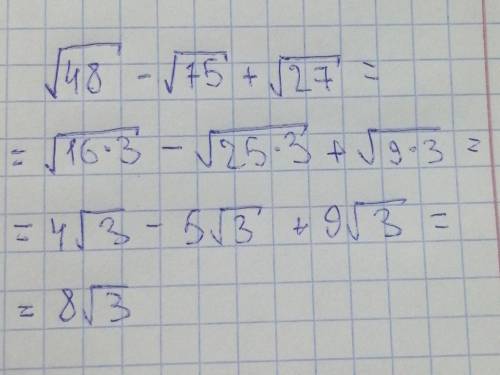 √48 - √75 + √27 =
= √16·3 - √25·3 + √9·3 =
= 4√3 - 5√3 + 9√3 =
= 8√3